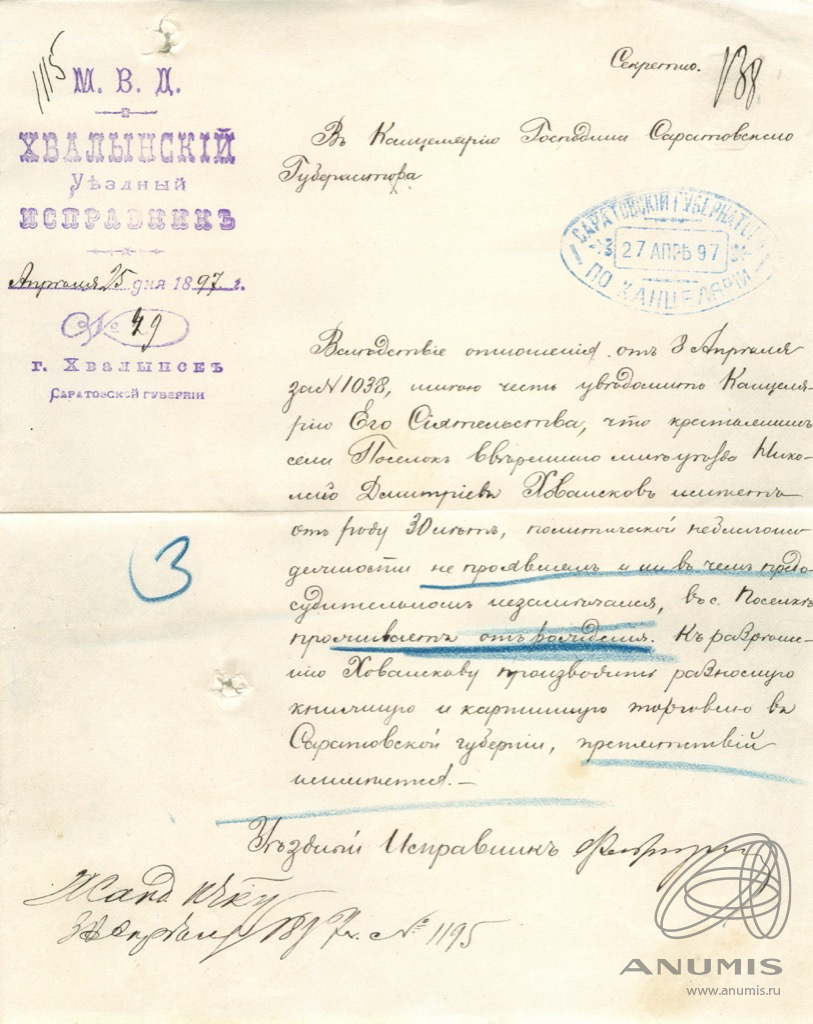 1115
М. В. Д.
ХВАЛЫНСКІЙ
Уѣздный
ИСПРАВНИКЪ
Апрѣля 25 дня 1897 г.
№ 29
г. Хвалынскъ
САРАТОВСКОЙ ГУБЕРНІИ
Секретно. 138
Въ Канцелярію Господина Саратовскаго
Губернатора
САРАТОВСКІЙ ГУБЕРНАТОРЪ
27 АПРѢ 97
ПО КАНЦЕЛЯРІИ
Вслѣдствіе отношенія отъ 8 Апрѣля
за № 1038, имѣю честь увѣдомить Канцеля-
рію Его Сіятельства, что крестьянинъ
села Поселокъ ввѣреннаго мнѣ уѣзда Нико-
лай Дмитріевъ Ховансковъ имѣетъ
отъ роду 30 лѣтъ, политической неблагона
дежности не проявлялъ и ни въ чемъ предо-
судительномъ незамѣчался, въ с. Поселкѣ
проживаетъ отъ рожденія. Къ разрѣше-
нію Хованскову производить разносную
книжную и картинную торговлю въ
Саратовской губерніи, препятствій
неимѣется.—
3
Уѣздный Исправникъ
30 Апрѣля 1897 г. № 1195
ANUMIS
www.anumis.ru